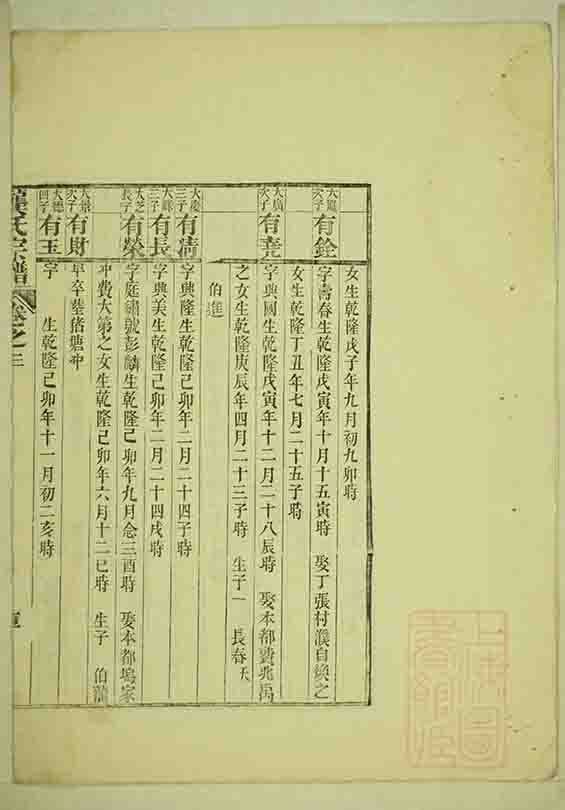 女生乾隆戊子年九月初九卯時
大 次子 有銓 字壽春生乾隆戊寅年十月十五寅時 娶丁張村濮自煥之
女生乾隆丁丑年七月二十五子時
大廣次子 有堯 字典國生乾隆戊寅年十二月二十八辰時 娶本都費兆禹
之女生乾隆庚辰年四月二十三子時 生子一 長春夭
伯進
大慶三子 有清 字興隆生乾隆己卯年二月二十四子時
大 三子 有長 字典美生乾隆己卯年二月二十四戌時
大芝長子 有榮 字庭繡號彭麟生乾隆己卯年九月念三酉時 娶本都塢家
冲費大第之女生乾隆己卯年六月十二巳時 生子 伯龍
大景次子 有財 早卒塟猪塘冲
大德四子 有玉 字 生乾隆己卯年十一月初二亥時
氏宗譜 卷之三